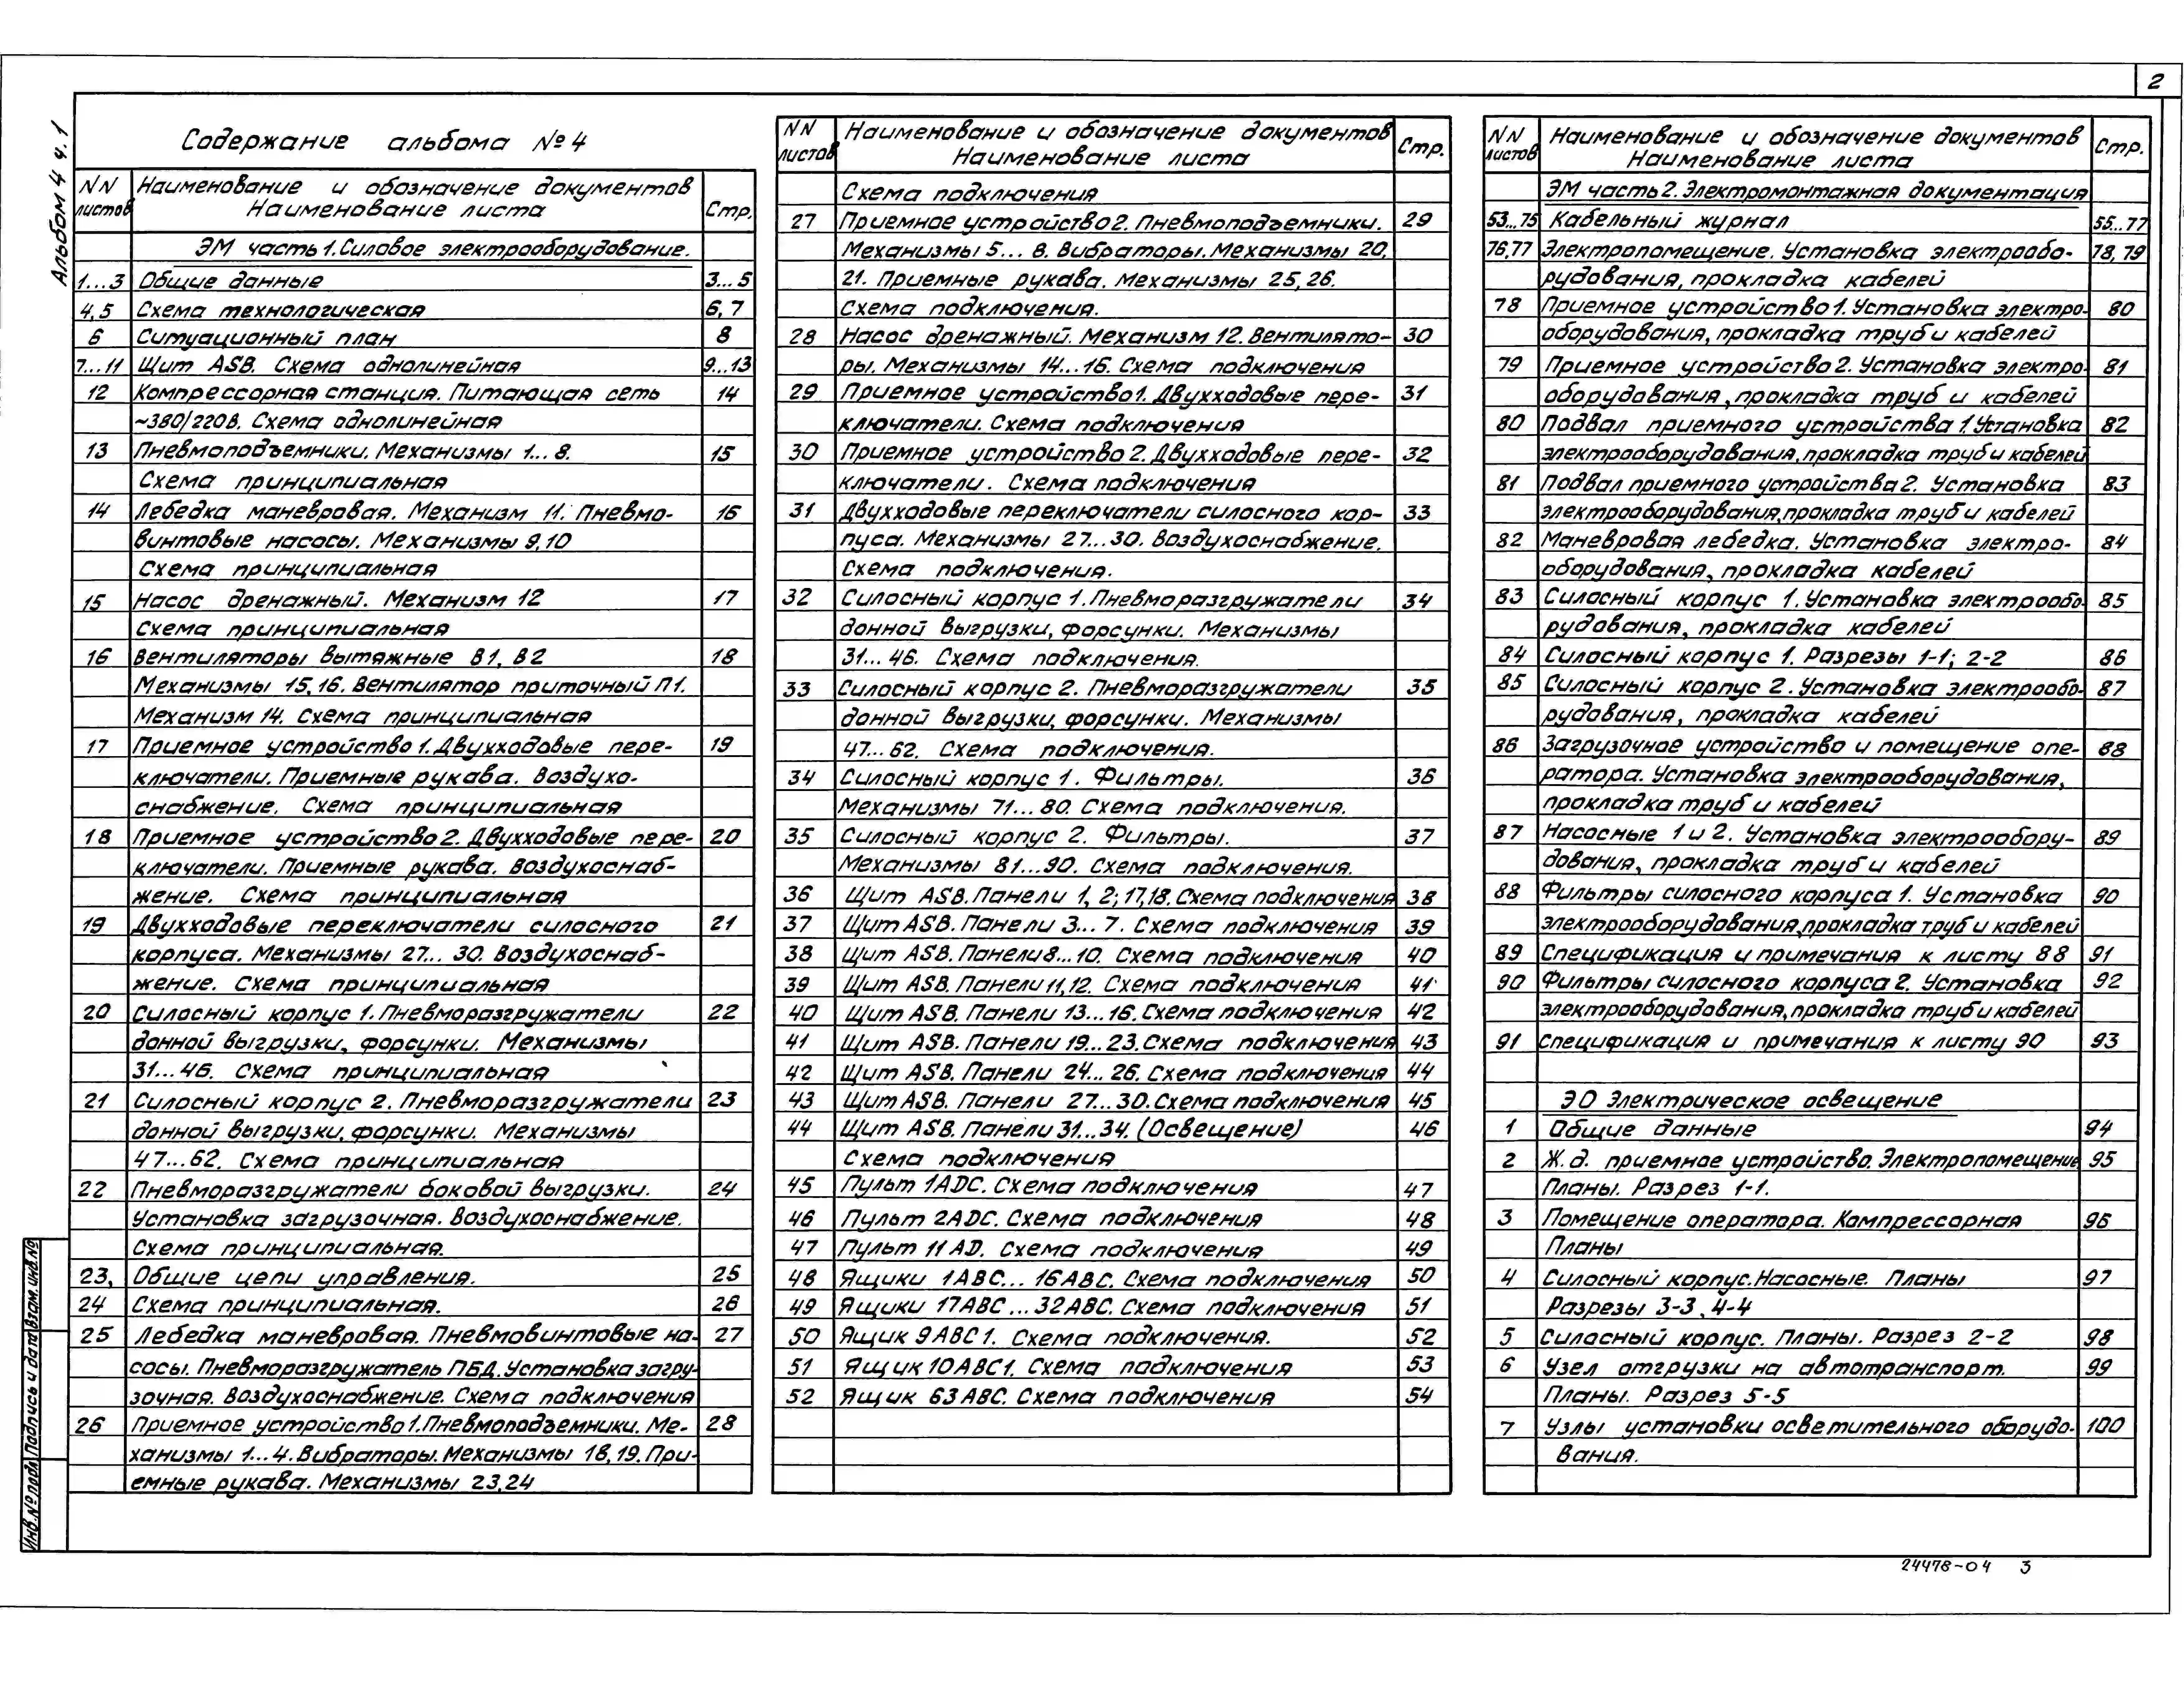 2
Альбом 4 ч. 1
Содержание альбома №4
NN листов
Наименование и обозначение документов
Наименование листа
Стр.
ЭМ часть 1. Силовое электрооборудование.
1...3 Общие данные 3...5
4,5 Схема технологическая 6,7
6 Ситуационный план 8
7...11 Щит ASB. Схема однолинейная 9...13
12 Компрессорная станция. Питающая сеть 14
~380/220В. Схема однолинейная
13 Пневмоподъемники. Механизмы 1...8. 15
Схема принципиальная
14 Лебедка маневровая. Механизм 11. Пневмо- 16
винтовые насосы. Механизмы 9,10
Схема принципиальная
15 Насос дренажный. Механизм 12 17
Схема принципиальная
16 Вентиляторы вытяжные В1, В2 18
Механизмы 15,16. Вентилятор приточный П1.
Механизм 14. Схема принципиальная
17 Приемное устройство 1. Двухходовые пере- 19
ключатели. Приемные рукава. Воздухо-
снабжение. Схема принципиальная
18 Приемное устройство 2. Двухходовые пере- 20
ключатели. Приемные рукава. Воздухоснаб-
жение. Схема принципиальная
19 Двухходовые переключатели силосного 21
корпуса. Механизмы 27...30. Воздухоснаб-
жение. Схема принципиальная
20 Силосный корпус 1. Пневморазгружатели 22
донной выгрузки, форсунки. Механизмы
31...46. Схема принципиальная
21 Силосный корпус 2. Пневморазгружатели 23
донной выгрузки, форсунки. Механизмы
47...62. Схема принципиальная
22 Пневморазгружатели боковой выгрузки. 24
Установка загрузочная. Воздухоснабжение.
Схема принципиальная.
23, Общие цепи управления. 25
24 Схема принципиальная. 26
25 Лебедка маневровая. Пневмовинтовые на- 27
сосы. Пневморазгружатель ПБД. Установка загру-
зочная. Воздухоснабжение. Схема подключения
26 Приемное устройство 1. Пневмоподъемники. Ме- 28
ханизмы 1...4. Вибраторы. Механизмы 18,19. При-
емные рукава. Механизмы 23,24
NN листов
Наименование и обозначение документов
Наименование листа
Стр.
Схема подключения
27 Приемное устройство 2. Пневмоподъемники. 29
Механизмы 5...8. Вибраторы. Механизмы 20,
21. Приемные рукава. Механизмы 25,26.
Схема подключения.
28 Насос дренажный. Механизм 12. Вентилято- 30
ры. Механизмы 14...16. Схема подключения
29 Приемное устройство 1. Двухходовые пере- 31
ключатели. Схема подключения
30 Приемное устройство 2. Двухходовые пере- 32
ключатели. Схема подключения
31 Двухходовые переключатели силосного кор- 33
пуса. Механизмы 27...30. Воздухоснабжение.
Схема подключения.
32 Силосный корпус 1. Пневморазгружатели 34
донной выгрузки, форсунки. Механизмы
31...46. Схема подключения.
33 Силосный корпус 2. Пневморазгружатели 35
донной выгрузки, форсунки. Механизмы
47...62. Схема подключения.
34 Силосный корпус 1. Фильтры. 36
Механизмы 71...80. Схема подключения.
35 Силосный корпус 2. Фильтры. 37
Механизмы 81...90. Схема подключения.
36 Щит ASB. Панели 1, 2; 17,18. Схема подключения 38
37 Щит ASB. Панели 3...7. Схема подключения 39
38 Щит ASB. Панели 8...10. Схема подключения 40
39 Щит ASB. Панели 11,12. Схема подключения 41
40 Щит ASB. Панели 13...16. Схема подключения 42
41 Щит ASB. Панели 19...23. Схема подключения 43
42 Щит ASB. Панели 24...26. Схема подключения 44
43 Щит ASB. Панели 27...30. Схема подключения 45
44 Щит ASB. Панели 31...34. (Освещение) 46
Схема подключения
45 Пульт 1ADC. Схема подключения 47
46 Пульт 2ADC. Схема подключения 48
47 Пульт 11AD. Схема подключения 49
48 Ящики 1АВС...16АВС. Схема подключения 50
49 Ящики 17АВС...32АВС. Схема подключения 51
50 Ящик 9АВС1. Схема подключения. 52
51 Ящик 10АВС1. Схема подключения 53
52 Ящик 63АВС. Схема подключения 54
NN листов
Наименование и обозначение документов
Наименование листа
Стр.
ЭМ часть 2. Электромонтажная документация
53...75 Кабельный журнал 55...77
76,77 Электропомещение. Установка электрообо- 78,79
рудования, прокладка кабелей
78 Приемное устройство 1. Установка электро- 80
оборудования, прокладка труб и кабелей
79 Приемное устройство 2. Установка электро- 81
оборудования, прокладка труб и кабелей
80 Подвал приемного устройства 1. Установка 82
электрооборудования, прокладка труб и кабелей
81 Подвал приемного устройства 2. Установка 83
электрооборудования, прокладка труб и кабелей
82 Маневровая лебедка. Установка электро- 84
оборудования, прокладка кабелей
83 Силосный корпус 1. Установка электрообо- 85
рудования, прокладка кабелей
84 Силосный корпус 1. Разрезы 1-1; 2-2 86
85 Силосный корпус 2. Установка электрообо- 87
рудования, прокладка кабелей
86 Загрузочное устройство и помещение опе- 88
ратора. Установка электрооборудования,
прокладка труб и кабелей
87 Насосные 1 и 2. Установка электрообору- 89
дования, прокладка труб и кабелей
88 Фильтры силосного корпуса 1. Установка 90
электрооборудования, прокладка труб и кабелей
89 Спецификация и примечания к листу 88 91
90 Фильтры силосного корпуса 2. Установка 92
электрооборудования, прокладка труб и кабелей
91 Спецификация и примечания к листу 90 93
ЭО Электрическое освещение
1 Общие данные 94
2 Ж.д. приемное устройство. Электропомещение 95
Планы. Разрез 1-1.
3 Помещение оператора. Компрессорная 96
Планы
4 Силосный корпус. Насосные. Планы 97
Разрезы 3-3, 4-4
5 Силосный корпус. Планы. Разрез 2-2 98
6 Узел отгрузки на автотранспорт. 99
Планы. Разрез 5-5
7 Узлы установки осветительного оборудо- 100
вания.
Инв. № подл. Подпись и дата Взам. инв. №
24478-04 3